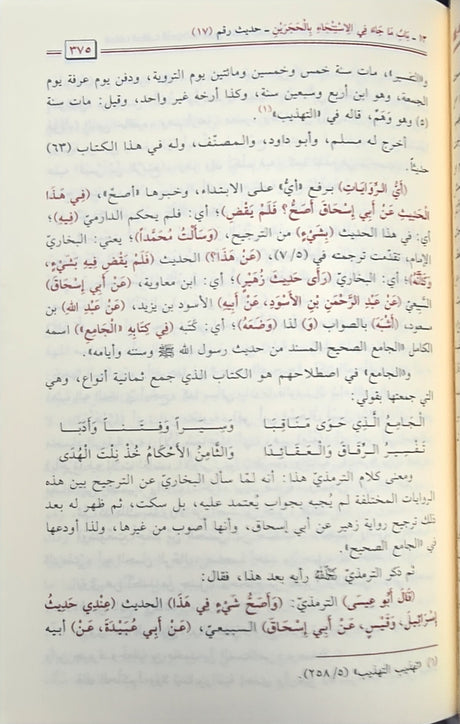 ١٣ - بَابُ مَا جَاءَ فِي الِاسْتِنْجَاءِ بِالْحَجَرَيْنِ - حديث رقم (١٧)
٣٧٥
و«التفسير»، مات سنة خمس وخمسين ومائتين يوم التروية، ودفن يوم عرفة يوم
الجمعة، وهو ابن أربع وسبعين سنة، وكذا أرخه غير واحد، وقيل: مات سنة
(٥) وهو وَهَمٌ، قاله في «التهذيب»(١).
أخرج له مسلم، وأبو داود، والمصنّف، وله في هذا الكتاب (٦٣)
حديثاً.
(أَيُّ الرِّوَايَاتِ) برفع «أيُّ» على الابتداء، وخبرها «أصحّ»، (فِي هَذَا
الْحَدِيثِ عَنْ أَبِي إِسْحَاقَ أَصَحُّ؟ فَلَمْ يَقْضِ)؛ أي: فلم يحكم الدارميّ (فِيهِ)؛
أي: في هذا الحديث (بِشَيْءٍ) من الترجيح، (وَسَأَلْتُ مُحَمَّداً)؛ يعني: البخاريّ
الإمام، تقدّمت ترجمته في (٧/٥)، (عَنْ هَذَا؟) الحديث (فَلَمْ يَقْضِ فِيهِ بِشَيْءٍ،
وَكَأَنَّهُ)؛ أي: البخاريّ (رَأَى حَدِيثَ زُهَيْرٍ)؛ أي: ابن معاوية، (عَنْ أَبِي إِسْحَاقَ)
السَّبِيعيّ (عَنْ عَبْدِ الرَّحْمَنِ بْنِ الْأَسْوَدِ، عَنْ أَبِيهِ) الأسود بن يزيد، (عَنْ عَبْدِ اللهِ) بن
مسعود، (أَشْبَهَ) بالصواب (وَ) لذا (وَضَعَهُ)؛ أي: كتَبه (فِي كِتَابِهِ «الْجَامِعِ») اسمه
الكامل «الجامع الصحيح المسند من حديث رسول الله ﷺ وسننه وأيامه».
و«الجامع» في اصطلاحهم هو الكتاب الذي جمع ثمانية أنواع، وهي
التي جمعتها بقولي:
الْجَامِعُ الَّذِي حَوَى مَنَاقِبَا وَسِيَراً وَفِتَناً وَأَدَبَا
تَفْسِيرُ الرِّقَاقِ وَالْعَقَائِدَا وَالثَّامِنُ الْأَحْكَامُ خُذْ نِلْتَ الْهُدَى
ومعنى كلام الترمذيّ هذا: أنه لما سأل البخاريّ عن الترجيح بين هذه
الروايات المختلفة لم يُجبه بجواب يُعتمد عليه، بل سكت، ثم ظهر له بعد
ذلك ترجيح رواية زهير عن أبي إسحاق، وأنها أصوب من غيرها، ولذا أودعها
في «الجامع الصحيح».
ثم ذكر الترمذيّ رحمه الله رأيه بعد هذا، فقال:
(قَالَ أَبُو عِيسَى) الترمذيّ: (وَأَصَحُّ شَيْءٍ فِي هَذَا) الحديث (عِنْدِي حَدِيثُ
إِسْرَائِيلَ، وَقَيْسٍ، عَنْ أَبِي إِسْحَاقَ) السبيعيّ، (عَنْ أَبِي عُبَيْدَةَ، عَنْ) أبيه
(١) «تهذيب التهذيب» (٢٥٨/٥).